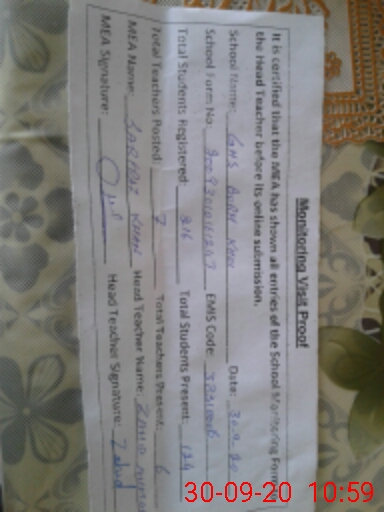 Monitoring Visit Proof
It is certified that the MEA has shown all entries of the School Monitoring Form to
the Head Teacher before its online submission.
School Name: GHS Date: 30-9-20
School Form No. EMIS Code:
Total Students Registered: 216 Total Students Present: 124
Total Teachers Posted: 7 Total Teachers Present: 6
MEA Name: SARFRAZ KHAN Head Teacher Name: Zahid
MEA Signature: Head Teacher Signature: Zahid
30-09-20 10:59